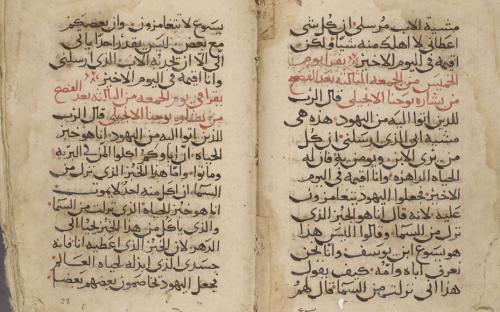 مشية الاب مرسلني ان كل شي
اعطاني لا اهلك منه شيا ولكن
اقمه في اليوم الاخير يقرا يوم
الخميس من الجمعه الثالثه بعد الفصح
من بشارة يوحنا الانجيلي قال الرب
للذين اتوا اليه من اليهود هذه هي
مشية ابي الذي ارسلني ان كل
من يرى الابن ويومن به فان له
الحياة الداهره وانا اقيمه في اليوم
الاخير فجعلوا اليهود يتغامزون
عليه لانه قال انا هو الخبز الذي
نزل من السما وقالوا اليس هذا
هو يسوع ابن يوسف وانا لنحن
نعرف اباه وامه كيف يقول
هذا اني نزلت من السما قال لهم
يسوع لا تتغامزون وان بعضكم
مع بعض ليس يقدر احدا ياتي
الي الا ان يجذبه الاب الذي ارسلني
وانا اقيمه في اليوم الاخير
يقرا في يوم الجمعه من الثالثه بعد الفصح
من بشاره يوحنا الانجيلي قال الرب
للذين اتوا اليه من اليهود انا هو خبز
الحياه ان اباوكم اكلوا المن في البريه
وماتوا واما هذا الخبز الذي نزل من
السما من اكل منه احد لا يموت
انا هو خبز الحياه الذي نزلت من السما
والذي ياكل من هذا الخبز يحيا الى
الدهر لان الخبز الذي اعطيه انا فانه
جسدي الذي ابذله لحياه العالم
فجعل اليهود يخاصمون بعضهم بعضا
28